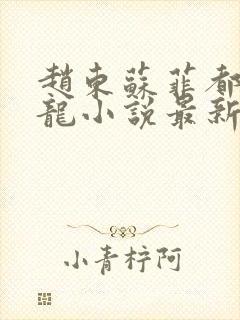 趙東蘇菲都
龍小說最新
小青梓阿